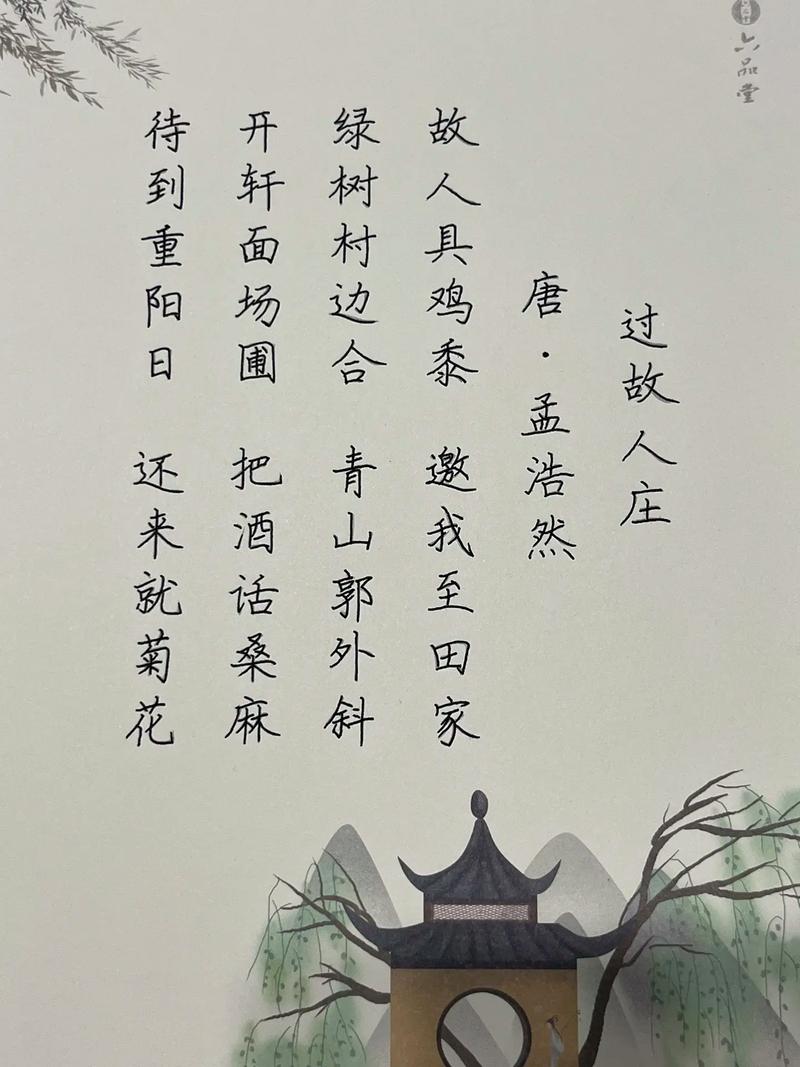 过故人庄
唐·孟浩然
故人具鸡黍 邀我至田家
绿树村边合 青山郭外斜
开轩面场圃 把酒话桑麻
待到重阳日 还来就菊花
六品堂